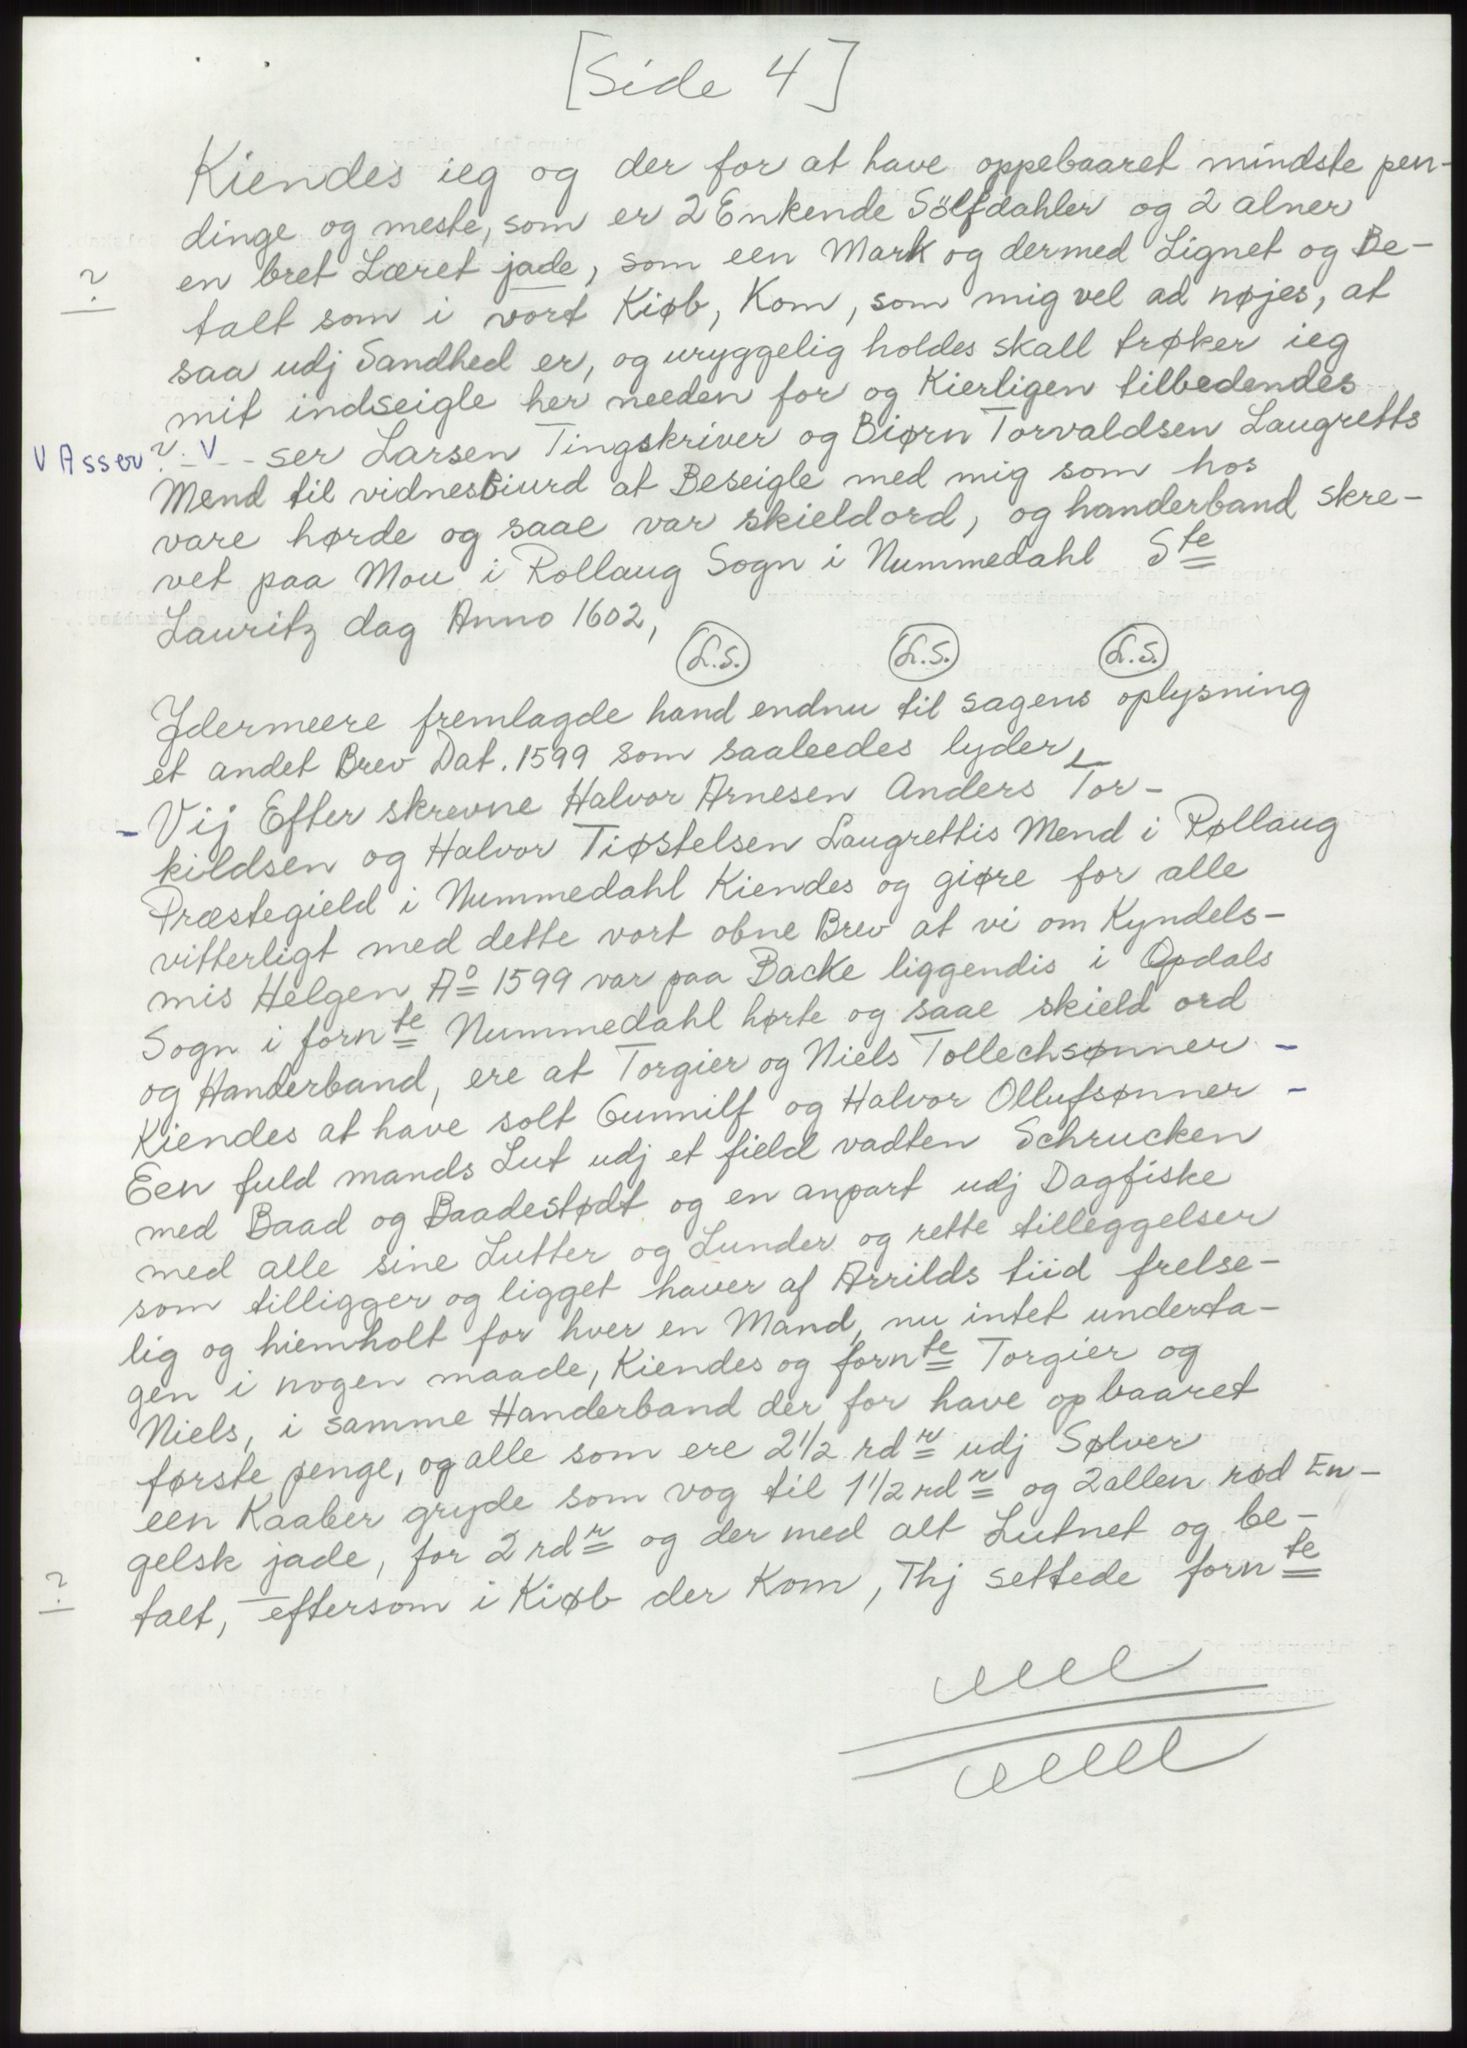 [Side 4]
Kiendes ieg og der for at have oppebaaret mindste pen-
dinge og meste, som er 2 Enkende Sölfdahler og 2 alner
en bret Læret jade, som een Mark og dermed Lignet og Be-
?
talt som i vort Kiøb, Kom, som mig vel ad nøjes, at
saa udj Sandhed er, og uryggelig holdes skall trøker ieg
mit indseigle her needen for og Kierligen tilbedendes
V Asser ? - V - - ser Larsen Tingskriver og Biørn Torvaldsen Laugretts
Mend til vidnesbiurd at Beseigle med mig som hos
vare hørde og saae var skieldord, og handerband skre-
vet paa Mou i Rollaug Sogn i Nummedahl Ste
Lauritz dag Anno 1602,
L.S. L.S. L.S.
Ydermeere fremlagde hand endnu til sagens oplysning
et andet Brev Dat. 1599 som saaleedes lyder,
- Vij Efter skrevne Halvor Arnesen Anders Tor-
kildsen og Halvor Tiøstelsen Laugrettis Mend i Røllaug
Præstegield i Nummedahl Kiendes og giøre for alle
vitterligt med dette vort obne Brev at vi om Kyndels-
mis Helgen Ao 1599 var paa Backe liggendis i Opdals
Sogn i fornte Nummedahl hørte og saae skield ord
og Handerband, ere at Torgier og Niels Tollechsønner -
Kiendes at have solt Gunnilf og Halvor Ollufsønner -
Een fuld mands Lut udj et field vadten Schrucken
med Baad og Baadestødt og en anpart udj Dagfiske
med alle sine Lutter og Lunder og rette tilleggelser
som tilligger og ligget haver af Arrilds tiid frelse-
lig og hiemholt for hver en Mand, nu intet underta-
gen i nogen maade, Kiendes og fornte Torgier og
Niels, i samme Handerband der for have opbaaret
første penge, og alle som ere 2 1/2 rdr udj Sølver
een Kaaber gryde som vog til 1 1/2 rdr og 2 allen rød En-
gelsk jade, for 2 rdr og der med alt Lutnet og be-
?
talt, eftersom i Kiøb der Kom, Thj settede fornte